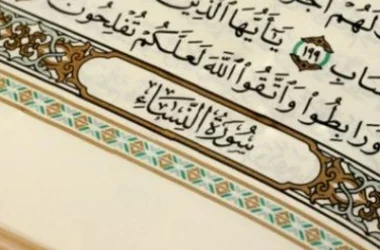 لَهُمْ
سَابِ ١٩٩ يَٰٓأَيُّهَا ٱلَّذِينَ
وَرَابِطُوا۟ وَٱتَّقُوا۟ ٱللَّهَ لَعَلَّكُمْ تُفْلِحُونَ
سُورَةُ النِّسَاءِ